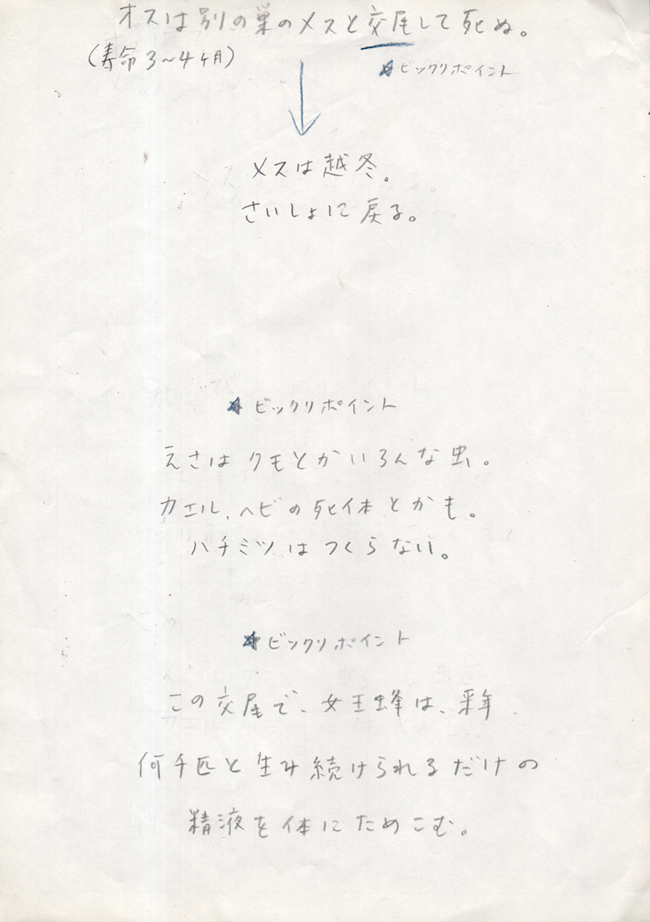 オスは別の巣のメスと交尾して死ぬ。
(寿命3~4ヶ月)
★ビックリポイント
メスは越冬。
さいしょに戻る。
★ビックリポイント
えさはクモとかいろんな虫。
カエル、ヘビの死体とかも。
ハチミツはつくらない。
★ビックリポイント
この交尾で、女王蜂は、来年
何千匹と生み続けられるだけの
精液を体にためこむ。